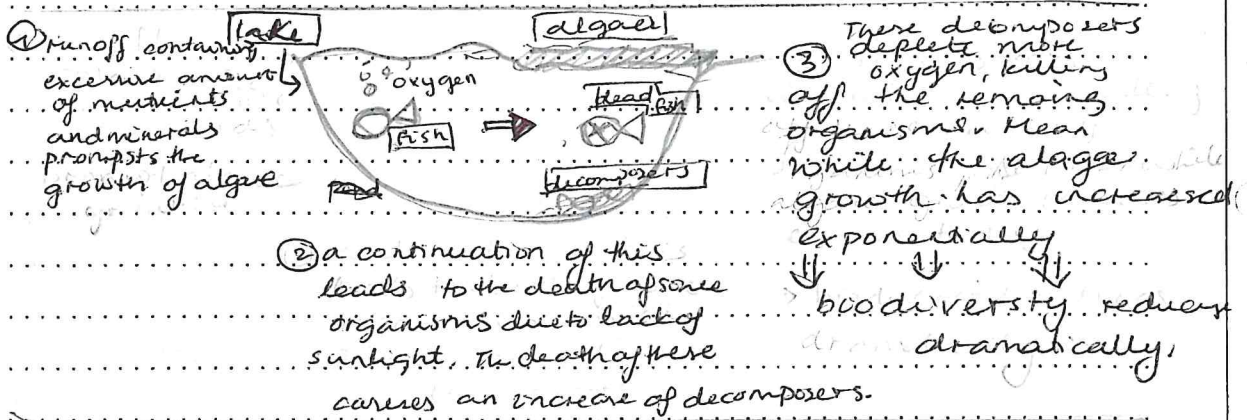 ① runoff containing
excessive amount
of nutrients
and minerals
prompsts the
growth of algae
lake
algaes
oxygen
fish
dead fish
decomposers
② a continuation of this
leads to the death of some
organisms due to lack of
sunlight. The death of these
causes an increase of decomposers.
③ These decomposers
deplete more
oxygen, killing
off the remaing
organisms. Mean
while the alagae
growth has increasesed
exponentially
biodiversty reduces
dramatically.